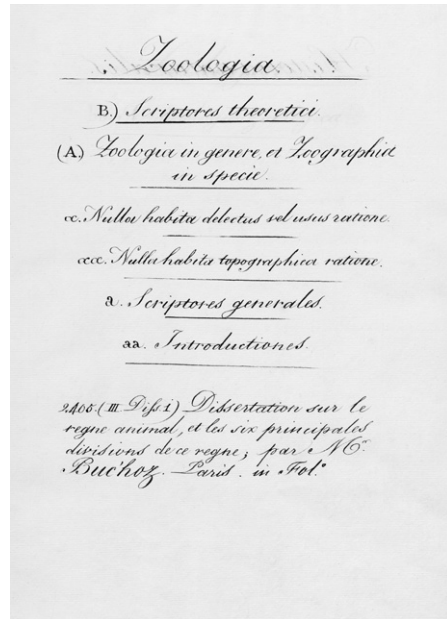 Zoologia
B.) Scriptores theoretici.
(A.) Zoologia in genere, et Zoographia
in specie.
α. Nulla habita delectus vel usus ratione.
αα. Nulla habita topographica ratione.
a. Scriptores generales.
aa. Introductiones.
2405. (III Diss. 1) Dissertation sur le
regne animal, et les six principales
divisions de ce regne; par Mr.
Buc'hoz. Paris. in Fol.º